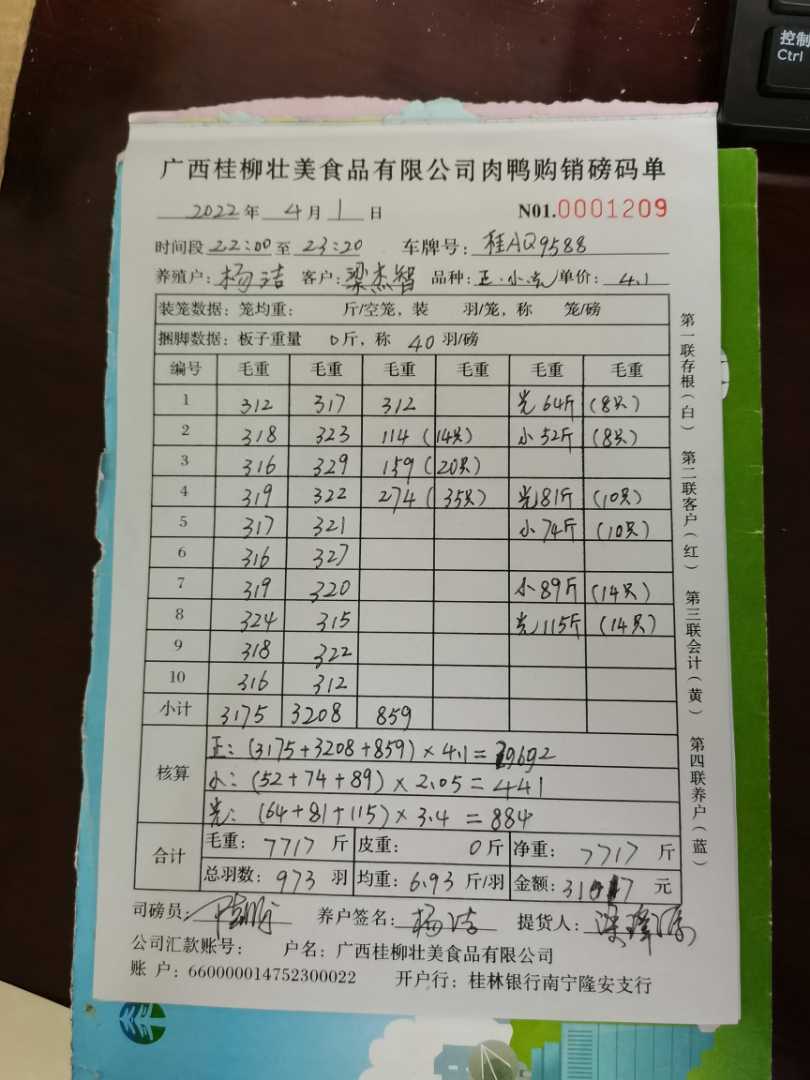 控制
Ctrl
广西桂柳壮美食品有限公司肉鸭购销磅码单
2022年 4月 1日 N01.0001209
时间段 22:00 至 23:20 车牌号: 桂AQ9588
养殖户: 杨洁 客户: 梁杰智 品种: 正·小·光 单价: 4.1
装笼数据: 笼均重: 斤/空笼, 装 羽/笼, 称 笼/磅
捆脚数据: 板子重量 0斤, 称 40 羽/磅
编号 毛重 毛重 毛重 毛重 毛重 毛重
1 312 317 312 光64斤 (8只)
2 318 323 114 (14只) 小52斤 (8只)
3 316 329 159 (20只)
4 319 322 274 (35只) 光81斤 (10只)
5 317 321 小74斤 (10只)
6 316 327
7 319 320 小89斤 (14只)
8 324 315 光115斤 (14只)
9 318 322
10 316 312
小计 3175 3208 859
核算
正: (3175+3208+859)×4.1=29692
小: (52+74+89)×2.05=441
光: (64+81+115)×3.4=884
合计
毛重: 7717斤 皮重: 0斤 净重: 7717斤
总羽数: 973羽 均重: 6.93斤/羽 金额: 31017元
司磅员: 养户签名: 杨洁 提货人:
公司汇款账号: 户名: 广西桂柳壮美食品有限公司
账 户: 660000014752300022 开户行: 桂林银行南宁隆安支行
第一联存根(白) 第二联客户(红) 第三联会计(黄) 第四联养户(蓝)